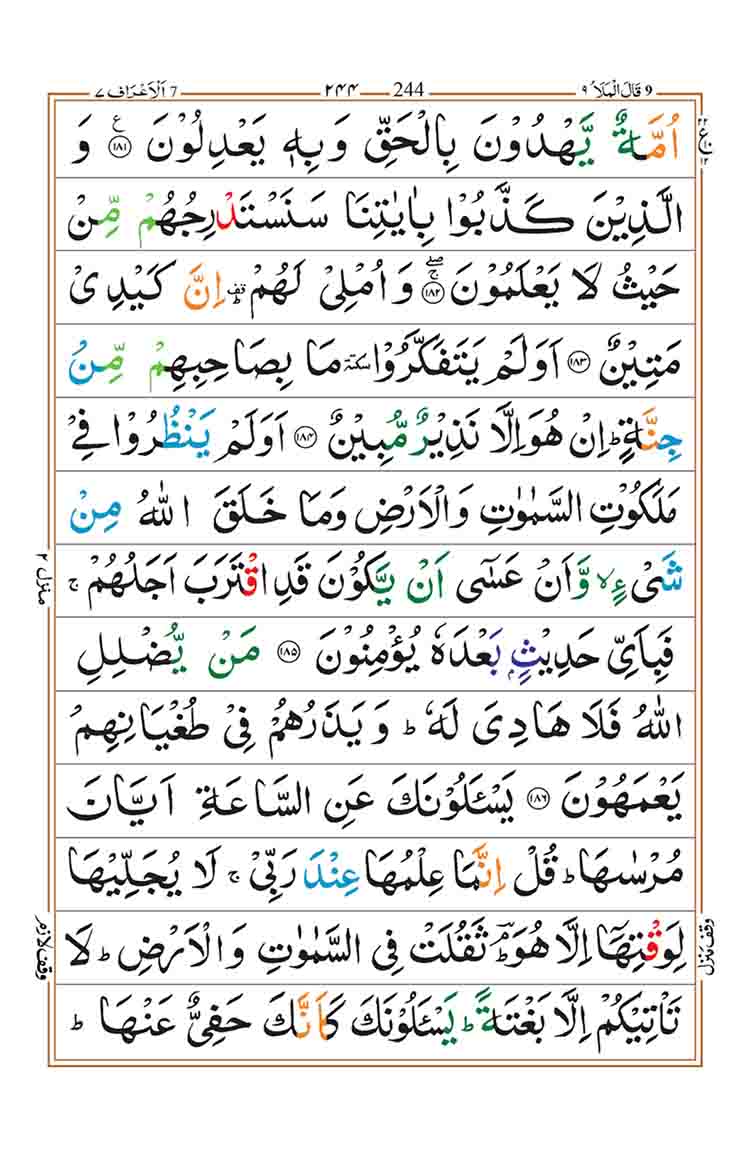 9 قَالَ الْمَلَاُ ٩ 244 ٢٤٤ 7 اَلْاَعْرَاف ٧
اُمَّةٌ يَّهْدُوْنَ بِالْحَقِّ وَبِهٖ يَعْدِلُوْنَ ۝١٨١ ع وَ
الَّذِيْنَ كَذَّبُوْا بِاٰيٰتِنَا سَنَسْتَدْرِجُهُمْ مِّنْ
حَيْثُ لَا يَعْلَمُوْنَ ۝١٨٢ ۖۚ وَاُمْلِيْ لَهُمْ ؕ قف اِنَّ كَيْدِيْ
مَتِيْنٌ ۝١٨٣ اَوَلَمْ يَتَفَكَّرُوْا سكتة مَا بِصَاحِبِهِمْ مِّنْ
جِنَّةٍ ؕ اِنْ هُوَ اِلَّا نَذِيْرٌ مُّبِيْنٌ ۝١٨٤ اَوَلَمْ يَنْظُرُوْا فِيْ
مَلَكُوْتِ السَّمٰوٰتِ وَالْاَرْضِ وَمَا خَلَقَ اللّٰهُ مِنْ
شَيْءٍ ۙ وَّاَنْ عَسٰٓى اَنْ يَّكُوْنَ قَدِ اقْتَرَبَ اَجَلُهُمْ ۚ
فَبِاَيِّ حَدِيْثٍۭ بَعْدَهٗ يُؤْمِنُوْنَ ۝١٨٥ مَنْ يُّضْلِلِ
اللّٰهُ فَلَا هَادِيَ لَهٗ ؕ وَيَذَرُهُمْ فِيْ طُغْيَانِهِمْ
يَعْمَهُوْنَ ۝١٨٦ يَسْـَٔلُوْنَكَ عَنِ السَّاعَةِ اَيَّانَ
مُرْسٰىهَا ؕ قُلْ اِنَّمَا عِلْمُهَا عِنْدَ رَبِّيْ ۚ لَا يُجَلِّيْهَا
لِوَقْتِهَآ اِلَّا هُوَ ؔۘؕ ثَقُلَتْ فِي السَّمٰوٰتِ وَالْاَرْضِ ؕ لَا
تَاْتِيْكُمْ اِلَّا بَغْتَةً ؕ يَسْـَٔلُوْنَكَ كَاَنَّكَ حَفِيٌّ عَنْهَا ؕ
منزل ٢
وقف لازم
وقف منزل